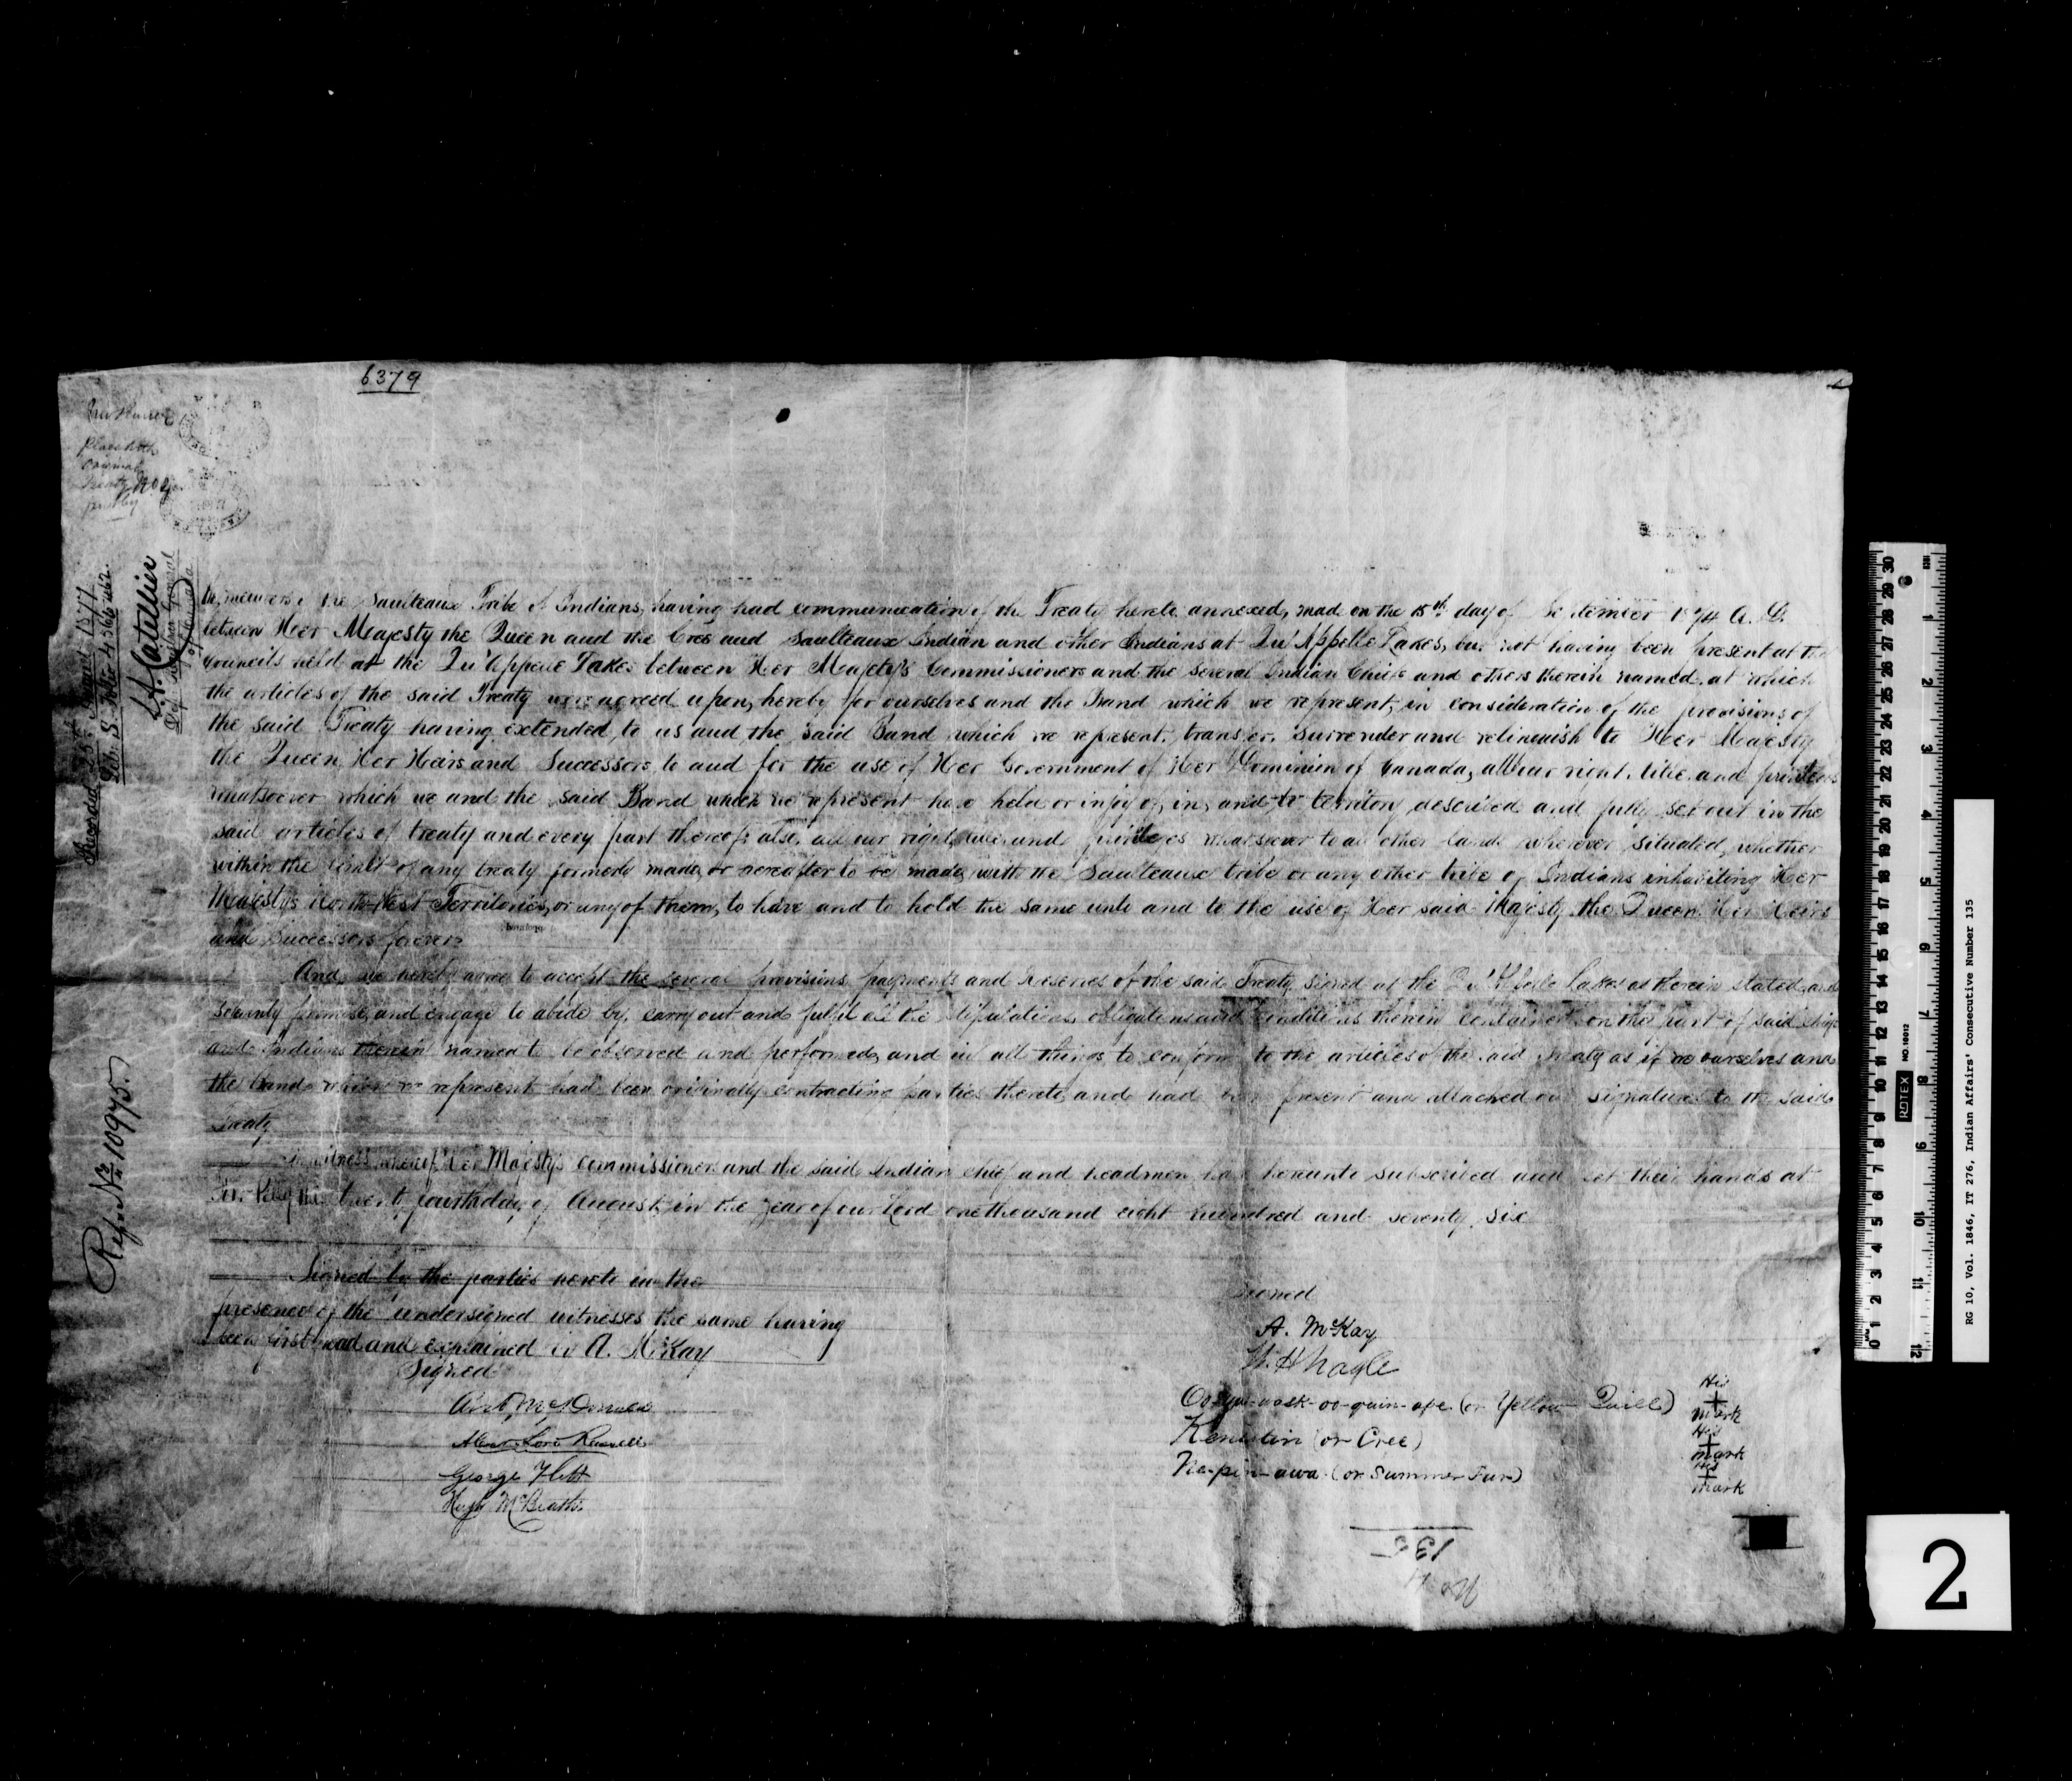 6379
Treaty No 4
Recorded 25th August 1877
Lib. S. Folio 456 to 462.
L. A. Catellier
Dep. Registrar General
of Canada
Refce No 10975.
members of the Saulteaux Tribe of Indians, having had communication of the Treaty hereto annexed, made on the 15th day of September 1874 A. D.
between Her Majesty the Queen and the Cree and Saulteaux Indian and other Indians at Qu'Appelle Lakes, but not having been present at the
Councils held at the Qu'Appelle Lakes between Her Majesty's Commissioners and the several Indian Chiefs and others therein named, at which
the articles of the said Treaty were agreed upon, hereby for ourselves and the Band which we represent, in consideration of the provisions of
the said Treaty having extended to us and the said Band which we represent, transfer, surrender and relinquish to Her Majesty
the Queen, Her Heirs and Successors, to and for the use of Her Government of Her Dominion of Canada, all our right, title and privileges
whatsoever which we and the said Band which we represent have held or enjoy of, in, and to territory described and fully set out in the
said articles of treaty and every part thereof; also, all our right, title and privileges whatsoever to all other lands wherever situated, whether
within the limit of any treaty formerly made, or hereafter to be made, with the Saulteaux tribe or any other tribe of Indians inhabiting Her
Majesty's North-West Territories, or any of them, to have and to hold the same unto and to the use of Her said Majesty the Queen, Her Heirs
and Successors forever.
And we hereby agree to accept the several provisions, payments and Reserves of the said Treaty, signed at the Qu'Appelle Lakes as therein stated, and
solemnly promise and engage to abide by, carry out and fulfil all the stipulations, obligations and conditions therein contained on the part of said Chiefs
and Indians therein named to be observed and performed, and in all things to conform to the articles of the said Treaty as if we ourselves and
the Band which we represent had been originally contracting parties thereto, and had been present and attached our signatures to the said
Treaty
In witness whereof, Her Majesty's Commissioners and the said Indian Chief and headmen have hereunto subscribed and set their hands at
Fort Pelly this twenty fourth day of August, in the year of our Lord one thousand eight hundred and seventy six
Signed by the parties hereto in the
presence of the undersigned witnesses the same having
been first read and explained by A. McKay
Signed
Arch. McDonald
George Flett
Hugh McBeath
Signed
A. McKay
W. H. Nagle
(or Yellow Quill) His + mark
Kenistin (or Cree) His + mark
Ne-pin-awa (or Summer Fur) His + mark
No
135
ROTEX NO. 10012
RG 10, Vol. 1846, IT 276, Indian Affairs' Consecutive Number 135
2